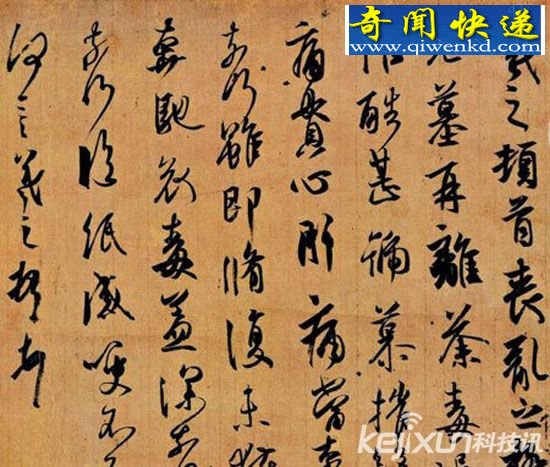 奇闻快递
www.qiwenkd.com
羲之頓首喪亂之極
先墓再離荼毒
惟酷甚號慕摧
痛貫心肝痛當奈
奈何雖即脩復未獲
奔馳哀毒益深奈
奈何臨紙感哽不
何言羲之頓首
kejixun科技讯